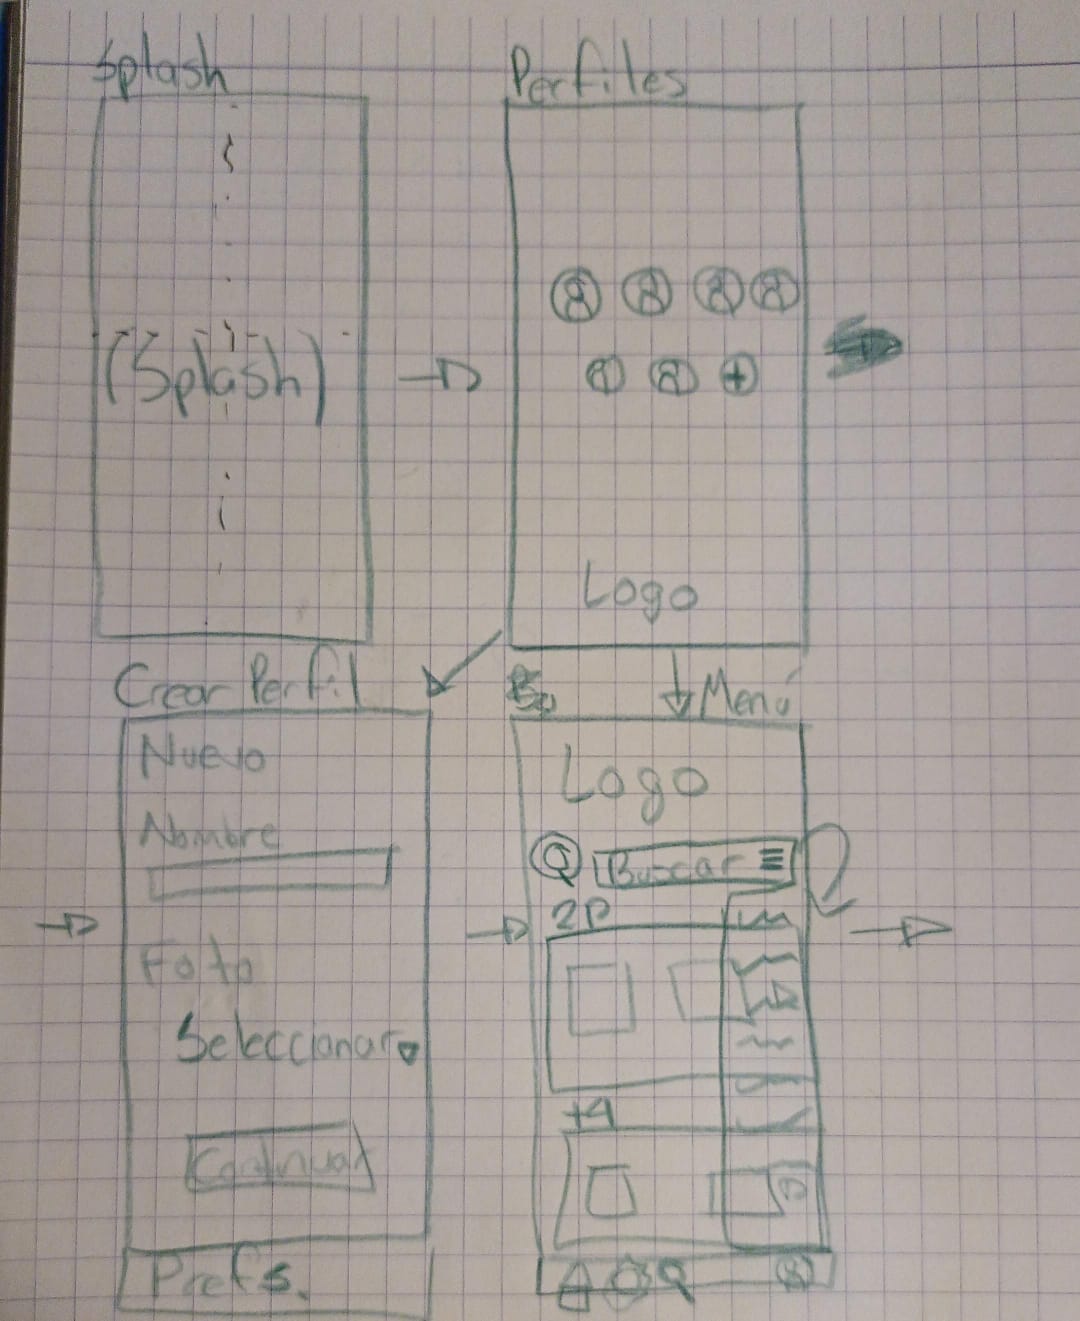 Splash
(Splash)
Perfiles
+
Logo
Crear Perfil
Nuevo
Nombre
Foto
Seleccionar
Continuar
Prefs.
Menú
Logo
Buscar
2P
+4